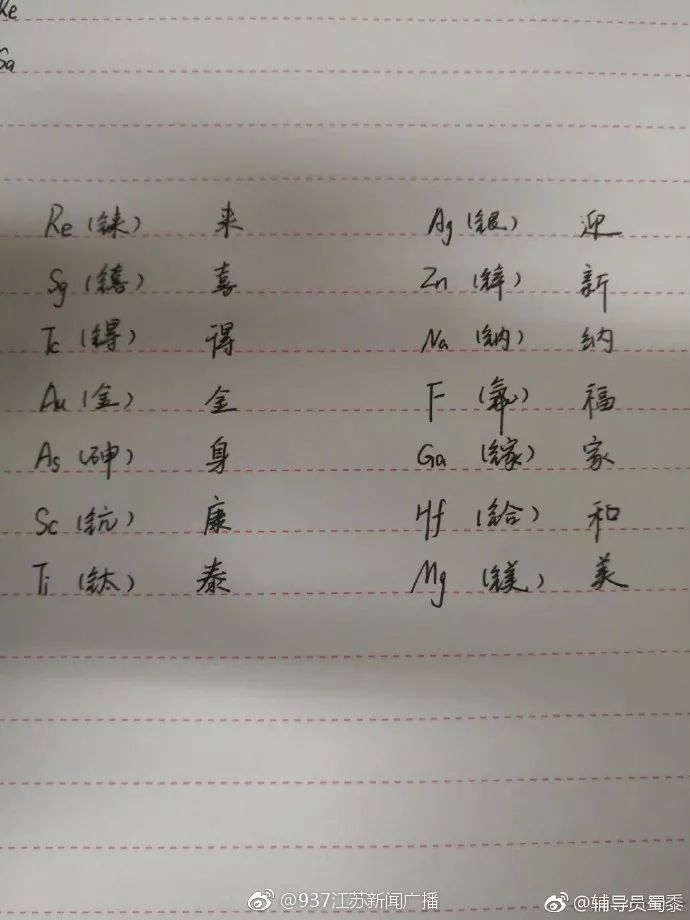 Re
Re (铼) 来 Ag (银) 迎
Sg (𨭎) 喜 Zn (锌) 新
Tc (锝) 得 Na (钠) 纳
Au (金) 金 F (氟) 福
As (砷) 身 Ga (镓) 家
Sc (钪) 康 Hf (铪) 和
Ti (钛) 泰 Mg (镁) 美
@937江苏新闻广播
@辅导员蜀黍